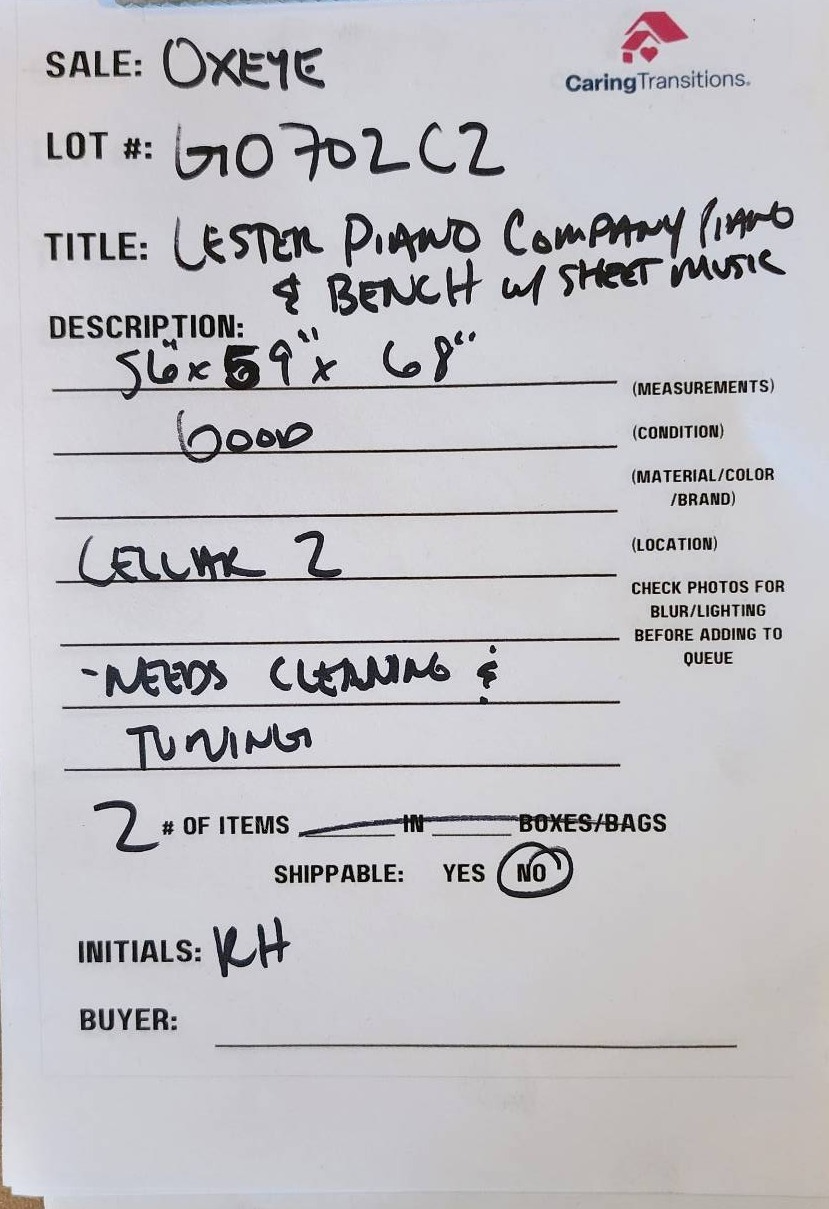 CaringTransitions.
SALE: OXEYE
LOT #: G0702C2
TITLE: LESTER PIANO COMPANY PIANO
& BENCH w/ SHEET MUSIC
DESCRIPTION:
56" x 59" x 68"
(MEASUREMENTS)
GOOD
(CONDITION)
(MATERIAL/COLOR
/BRAND)
CELLAR 2
(LOCATION)
CHECK PHOTOS FOR
BLUR/LIGHTING
BEFORE ADDING TO
QUEUE
-NEEDS CLEANING &
TUNING
2 # OF ITEMS ______ IN ______ BOXES/BAGS
SHIPPABLE: YES NO
INITIALS: RH
BUYER: